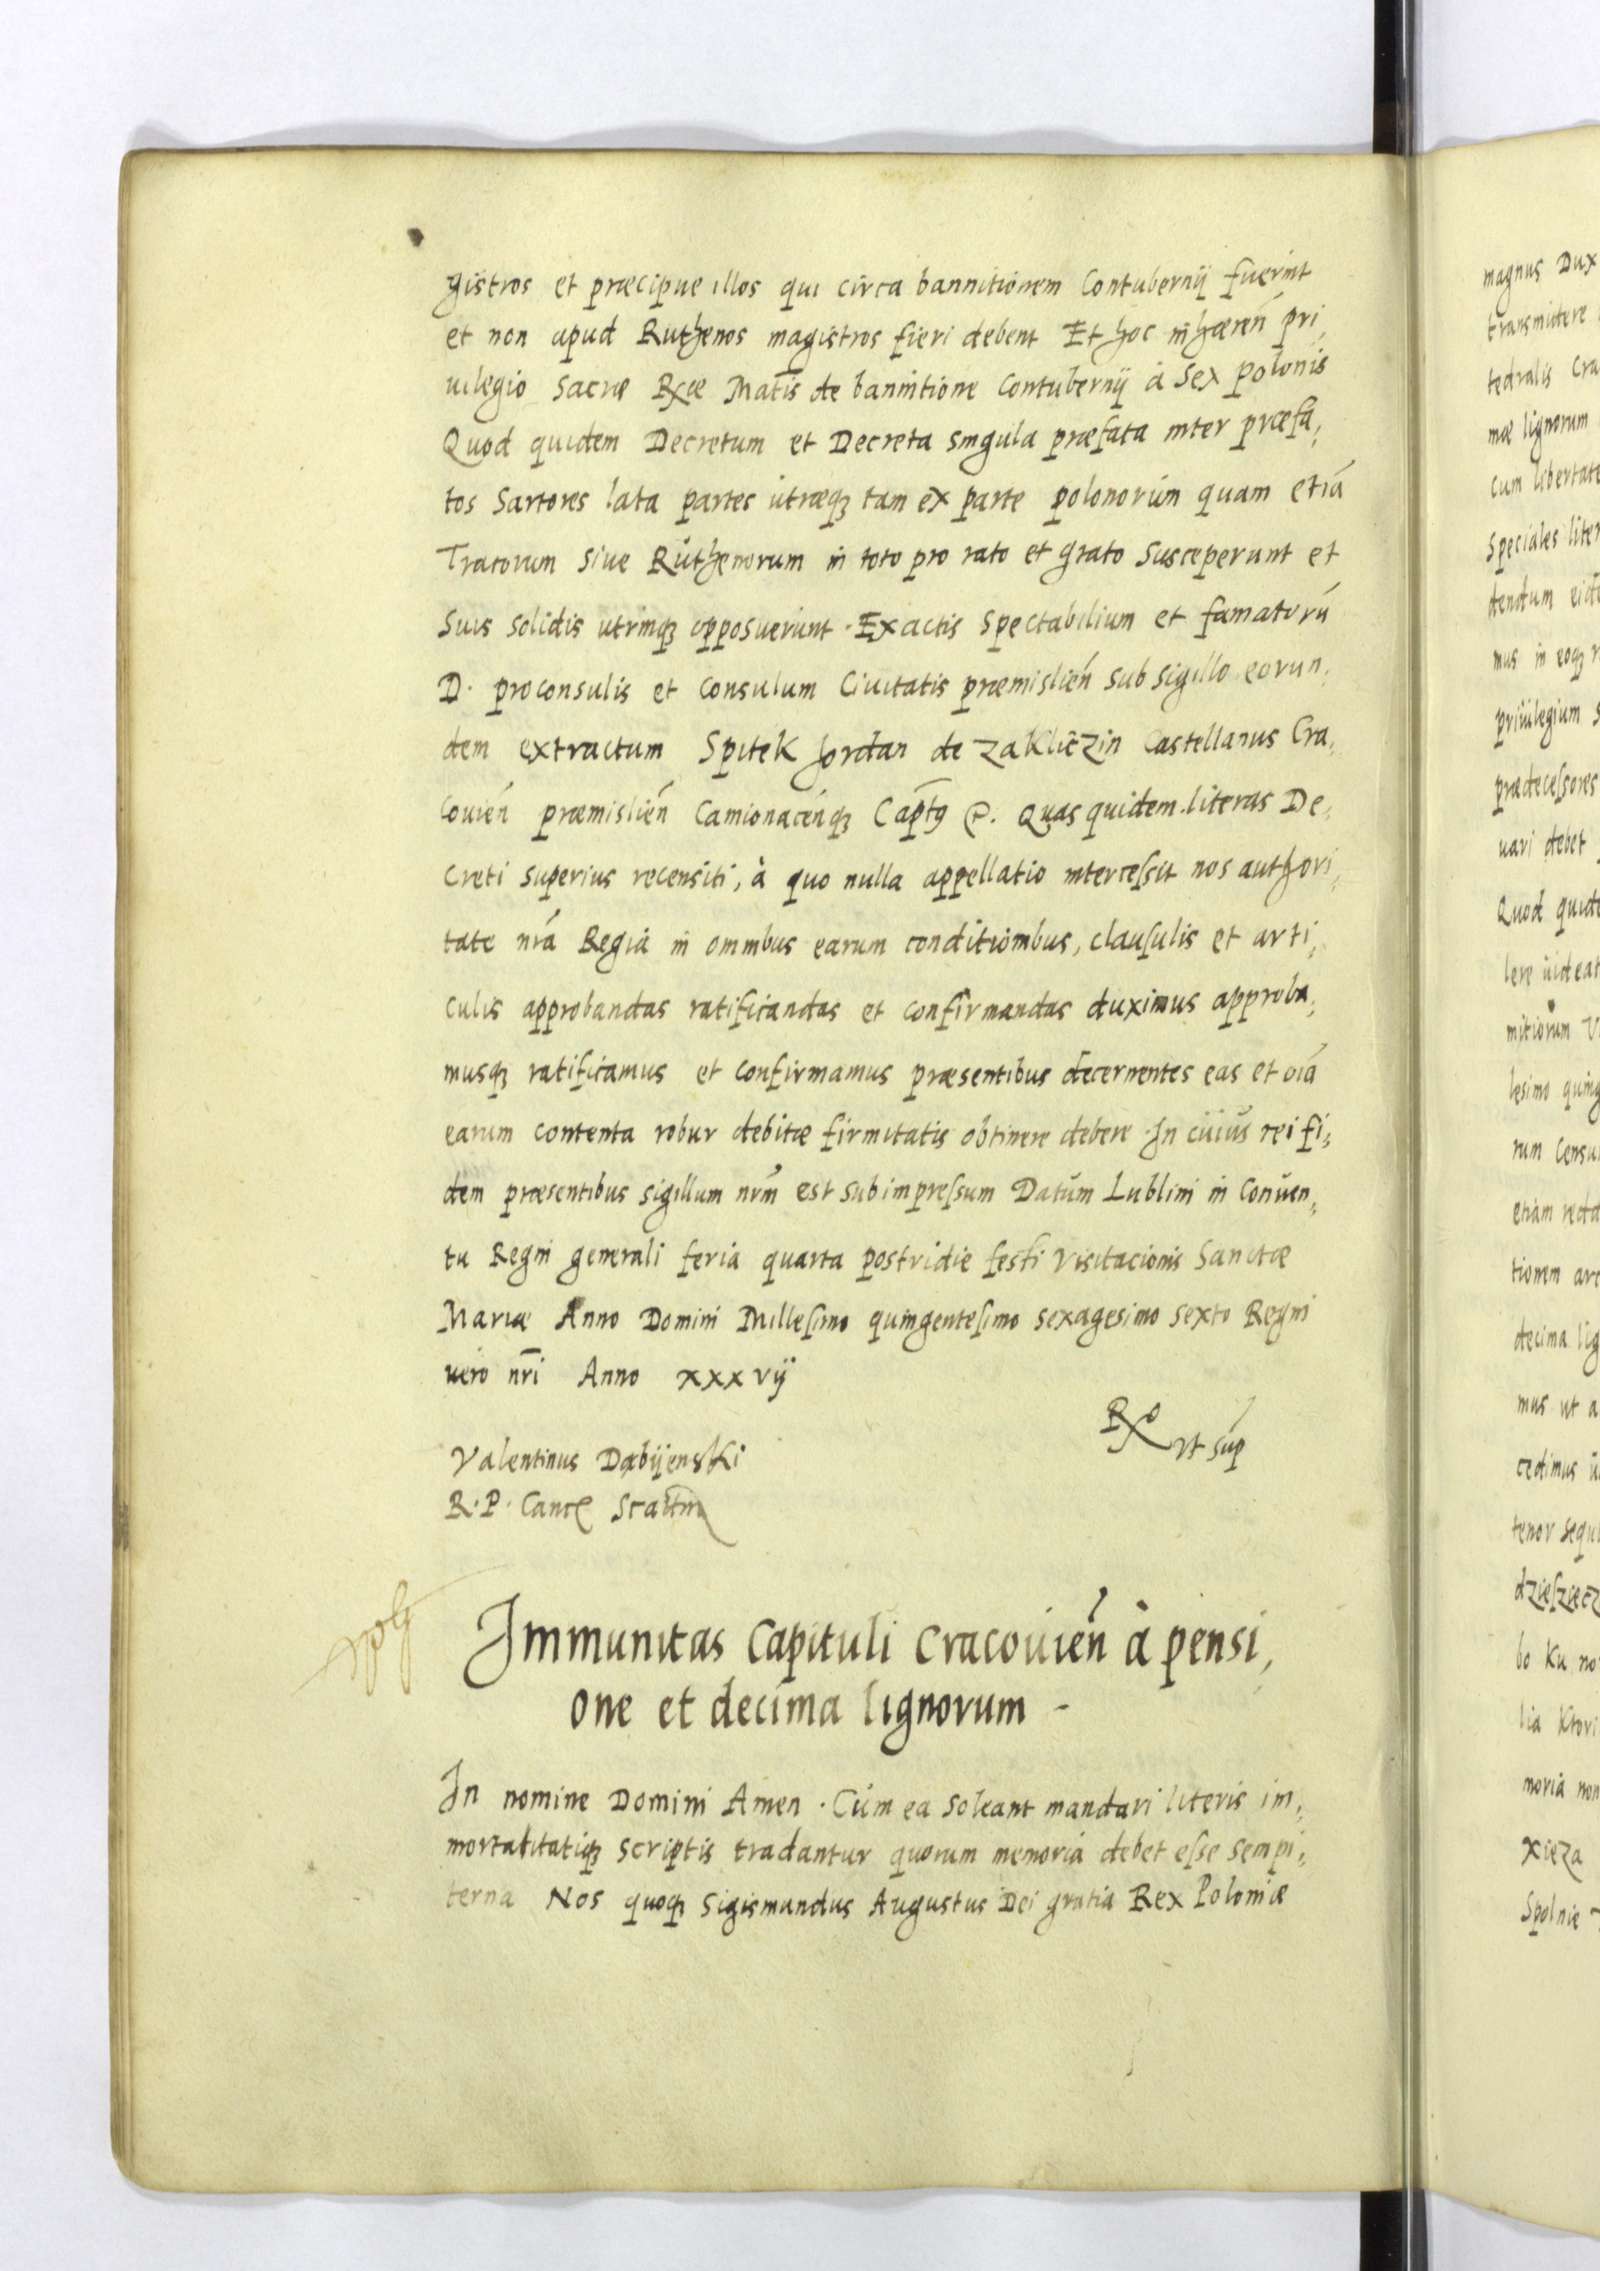 gistros et præcipue illos qui circa bannitionem Contubernij fuerint
et non apud Ruthenos magistros fieri debent Et hoc inhæreń pri,
uilegio Sacræ Rx̃æ Matis de bannitione Contubernij à Sex Polonis
Quod quidem Decretum et Decreta singula præfata inter præfa,
tos Sartores lata partes utræq3 tam ex parte polonorum quam etiá
Tracorum siue Ruthenorum in toto pro rato et grato susceperunt et
suis solidis utrinq3 opposuerunt. Ex actis spectabilium et famatorú
D. proconsulis et Consulum Ciuitatis præmislień sub sigillo eorun,
dem extractum Spitek Jordan de Zakliczin Castellanus Cra,
couień præmislień Camionaceńq3 Capt9 &. Quas quidem literas De,
creti superius recensiti, à quo nulla appellatio intercessit nos authori,
tate nrá Regia in omnibus earum conditionibus, clausulis et arti,
culis approbandas ratificandas et confirmandas duximus approba,
musq3 ratificamus et confirmamus præsentibus decernentes eas et oiá
earum contenta robur debitæ firmitatis obtinere debere. In cuius rei fi,
dem præsentibus sigillum nrm̃ est subimpressum Datum Lublini in Conuen,
tu Regni generali feria quarta postridie festi Visitacionis Sanctæ
Mariæ Anno Domini Millesimo quingentesimo sexagesimo sexto Regni
uero nr̃i Anno xxxvij
Rx ut sup
Valentinus Dębijenski
R. P. Canc
Immunitas Capituli Cracouień à pensi,
one et decima lignorum -
In nomine Domini Amen. Cum ea soleant mandari literis im,
mortalitatiq3 scriptis tradantur quorum memoria debet esse sempi,
terna Nos quoq3 Sigismundus Augustus Dei gratia Rex Poloniæ
magnus Dux
transmittere
tedralis Cra
mæ lignorum
cum libertate
Speciales liter
dendum eide
mus in eoq3
priuilegium s
prædecessores
uari debet
Quod quide
lere uideat
mitiorum
lesimo quing
rum Censu
etiam
tionem
decima lig
mus ut a
cedimus
tenor sequi
bo ku no
lia ktori
moria non
xięza
Spolnie